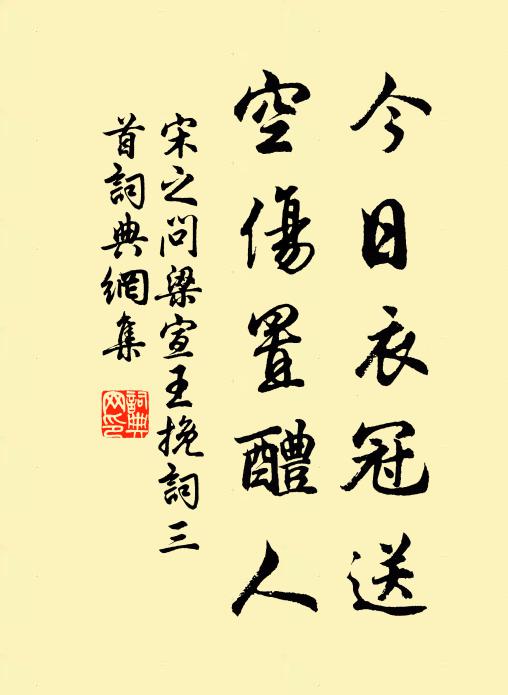 今日衣冠送
空傷置醴人
宋之问梁宣王挽詞三
首詞典網集
詞典
网印